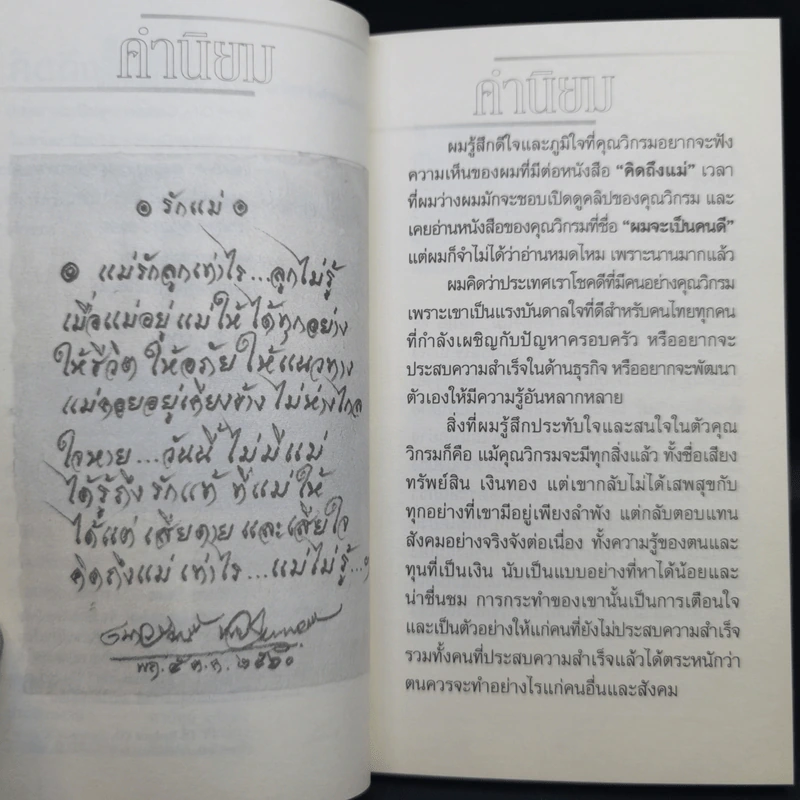 คำนิยม
๏ รักแม่ ๏
๏ แม่รักลูกเท่าไร...ลูกไม่รู้
เมื่อแม่อยู่ แม่ให้ ได้ทุกอย่าง
ให้ชีวิต ให้อภัย ให้แนวทาง
แม่คอยอยู่เคียงข้าง ไม่ห่างไกล
ใจหาย...วันนี้ ไม่มีแม่
ได้รู้ถึง รักแท้ ที่แม่ให้
ได้แต่ เสียดาย และเสียใจ
คิดถึงแม่ เท่าไร...แม่ไม่รู้..ฯ
พฤ. ๕ ต.ค. ๒๕๖๐
คำนิยม
ผมรู้สึกดีใจและภูมิใจที่คุณวิกรมอยากจะฟัง
ความเห็นของผมที่มีต่อหนังสือ “คิดถึงแม่” เวลา
ที่ผมว่างผมมักจะชอบเปิดดูคลิปของคุณวิกรม และ
เคยอ่านหนังสือของคุณวิกรมที่ชื่อ “ผมจะเป็นคนดี”
แต่ผมก็จำไม่ได้ว่าอ่านหมดไหม เพราะนานมากแล้ว
ผมคิดว่าประเทศเราโชคดีที่มีคนอย่างคุณวิกรม
เพราะเขาเป็นแรงบันดาลใจที่ดีสำหรับคนไทยทุกคน
ที่กำลังเผชิญกับปัญหาครอบครัว หรืออยากจะ
ประสบความสำเร็จในด้านธุรกิจ หรืออยากจะพัฒนา
ตัวเองให้มีความรู้อันหลากหลาย
สิ่งที่ผมรู้สึกประทับใจและสนใจในตัวคุณ
วิกรมก็คือ แม้คุณวิกรมจะมีทุกสิ่งแล้ว ทั้งชื่อเสียง
ทรัพย์สิน เงินทอง แต่เขากลับไม่ได้เสพสุขกับ
ทุกอย่างที่เขามีอยู่เพียงลำพัง แต่กลับตอบแทน
สังคมอย่างจริงจังต่อเนื่อง ทั้งความรู้ของตนและ
ทุนที่เป็นเงิน นับเป็นแบบอย่างที่หาได้น้อยและ
น่าชื่นชม การกระทำของเขานั้นเป็นการเตือนใจ
และเป็นตัวอย่างให้แก่คนที่ยังไม่ประสบความสำเร็จ
รวมทั้งคนที่ประสบความสำเร็จแล้วได้ตระหนักว่า
ตนควรจะทำอย่างไรแก่คนอื่นและสังคม